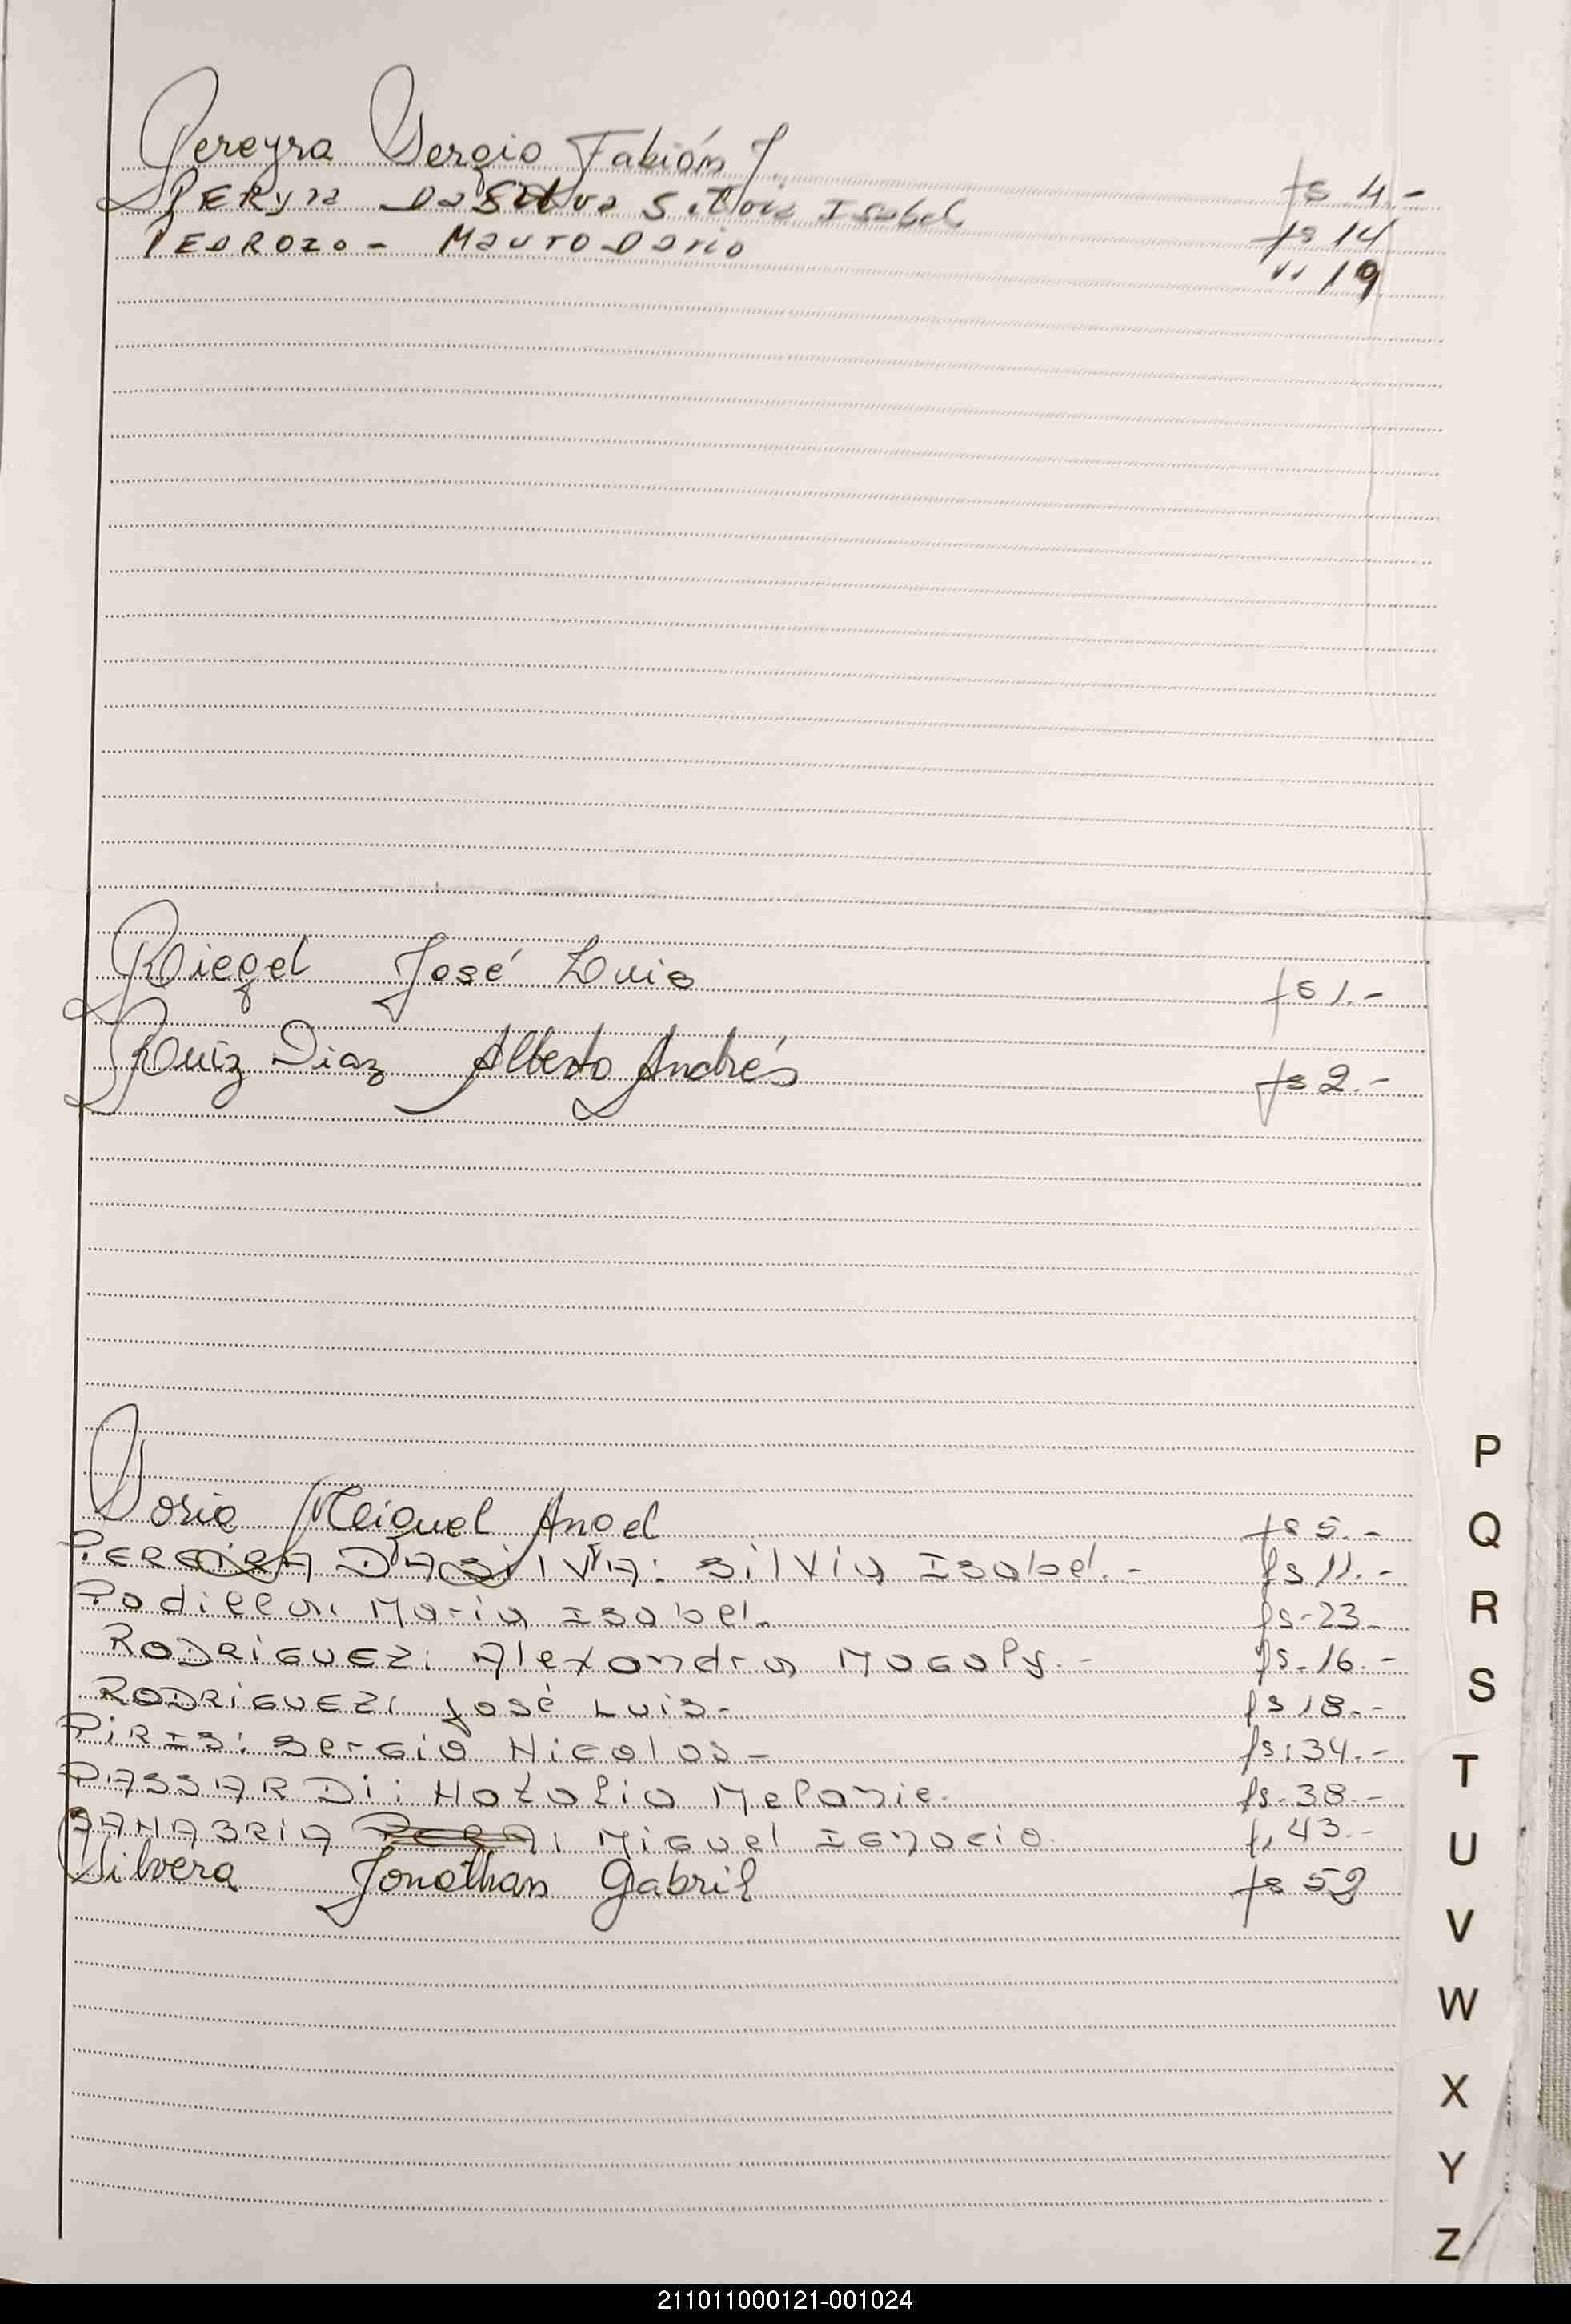 Pereyra Sergio Fabián J. fs 4.-
PEREyra Da Silva Silvia Isabel fs 14
PEDROZO - Mauro Dario " 19
Riegel José Luis fs 1.-
Ruiz Diaz Alberto Andrés fs 2.-
Soria Miguel Angel fs 5.-
PEREIRA DA SILVA: Silvia Isabel.- fs 11.-
Padilla: Maria Isabel. fs-23-
RODRIGUEZ: Alexandra Magaly.- fs-16.-
RODRIGUEZ: José Luis- fs 18.-
PIRIS: Sergio Nicolas- fs:34.-
PASSARDI: Natalia Melanie. fs-38.-
SANABRIA : Miguel Ignacio. f, 43.-
Silvera Jonathan Gabril fs 52
P
Q
R
S
T
U
V
W
X
Y
Z
211011000121-001024